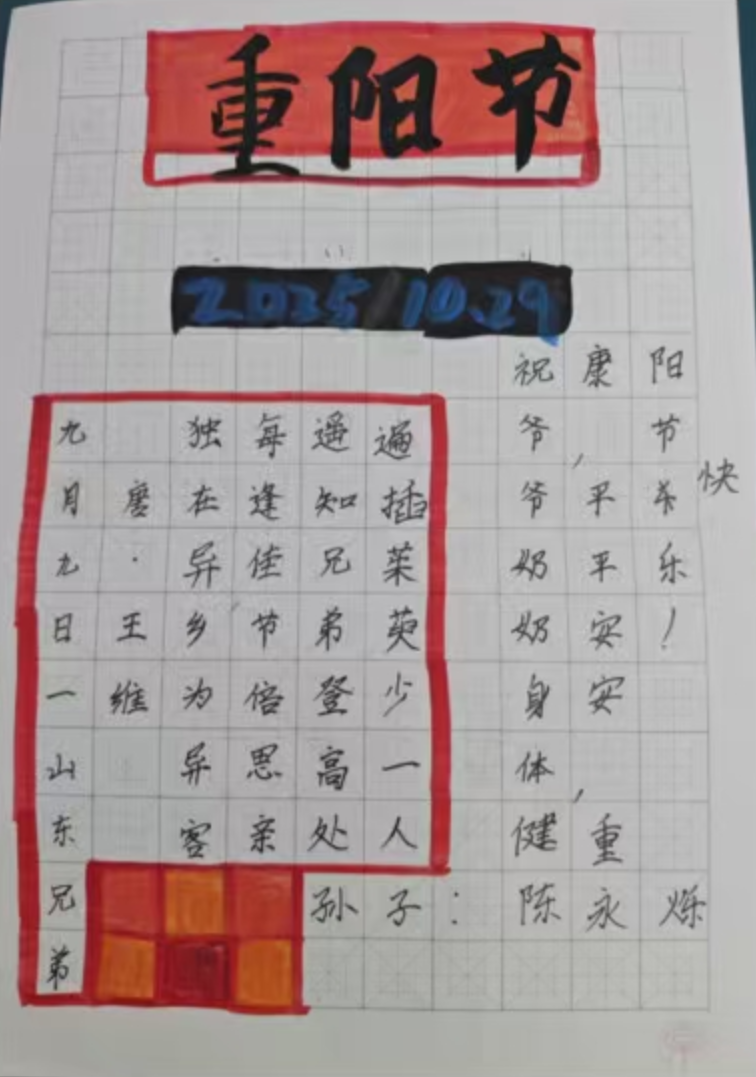 重阳节
2035/10.29
九月九日一山东兄弟
唐·王维
独在异乡为异客
每逢佳节倍思亲
遥知兄弟登高处
遍插茱萸少一人
祝爷爷奶奶身体健
康，平平安安，重
阳节快乐！
孙子：陈永烁